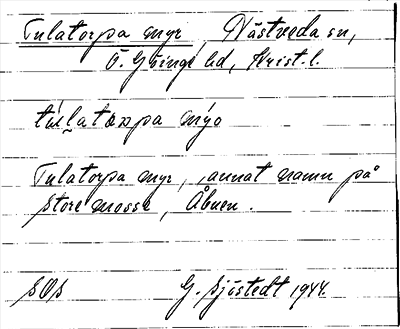 Tulatorpa myr, Västveda sn,
Ö. Göinge hd, Krist. l.
tùlatårpa my̌r
Tulatorpa myr, annat namn på
store mosse, Åbuen.
SOS G. Sjöstedt 1944.